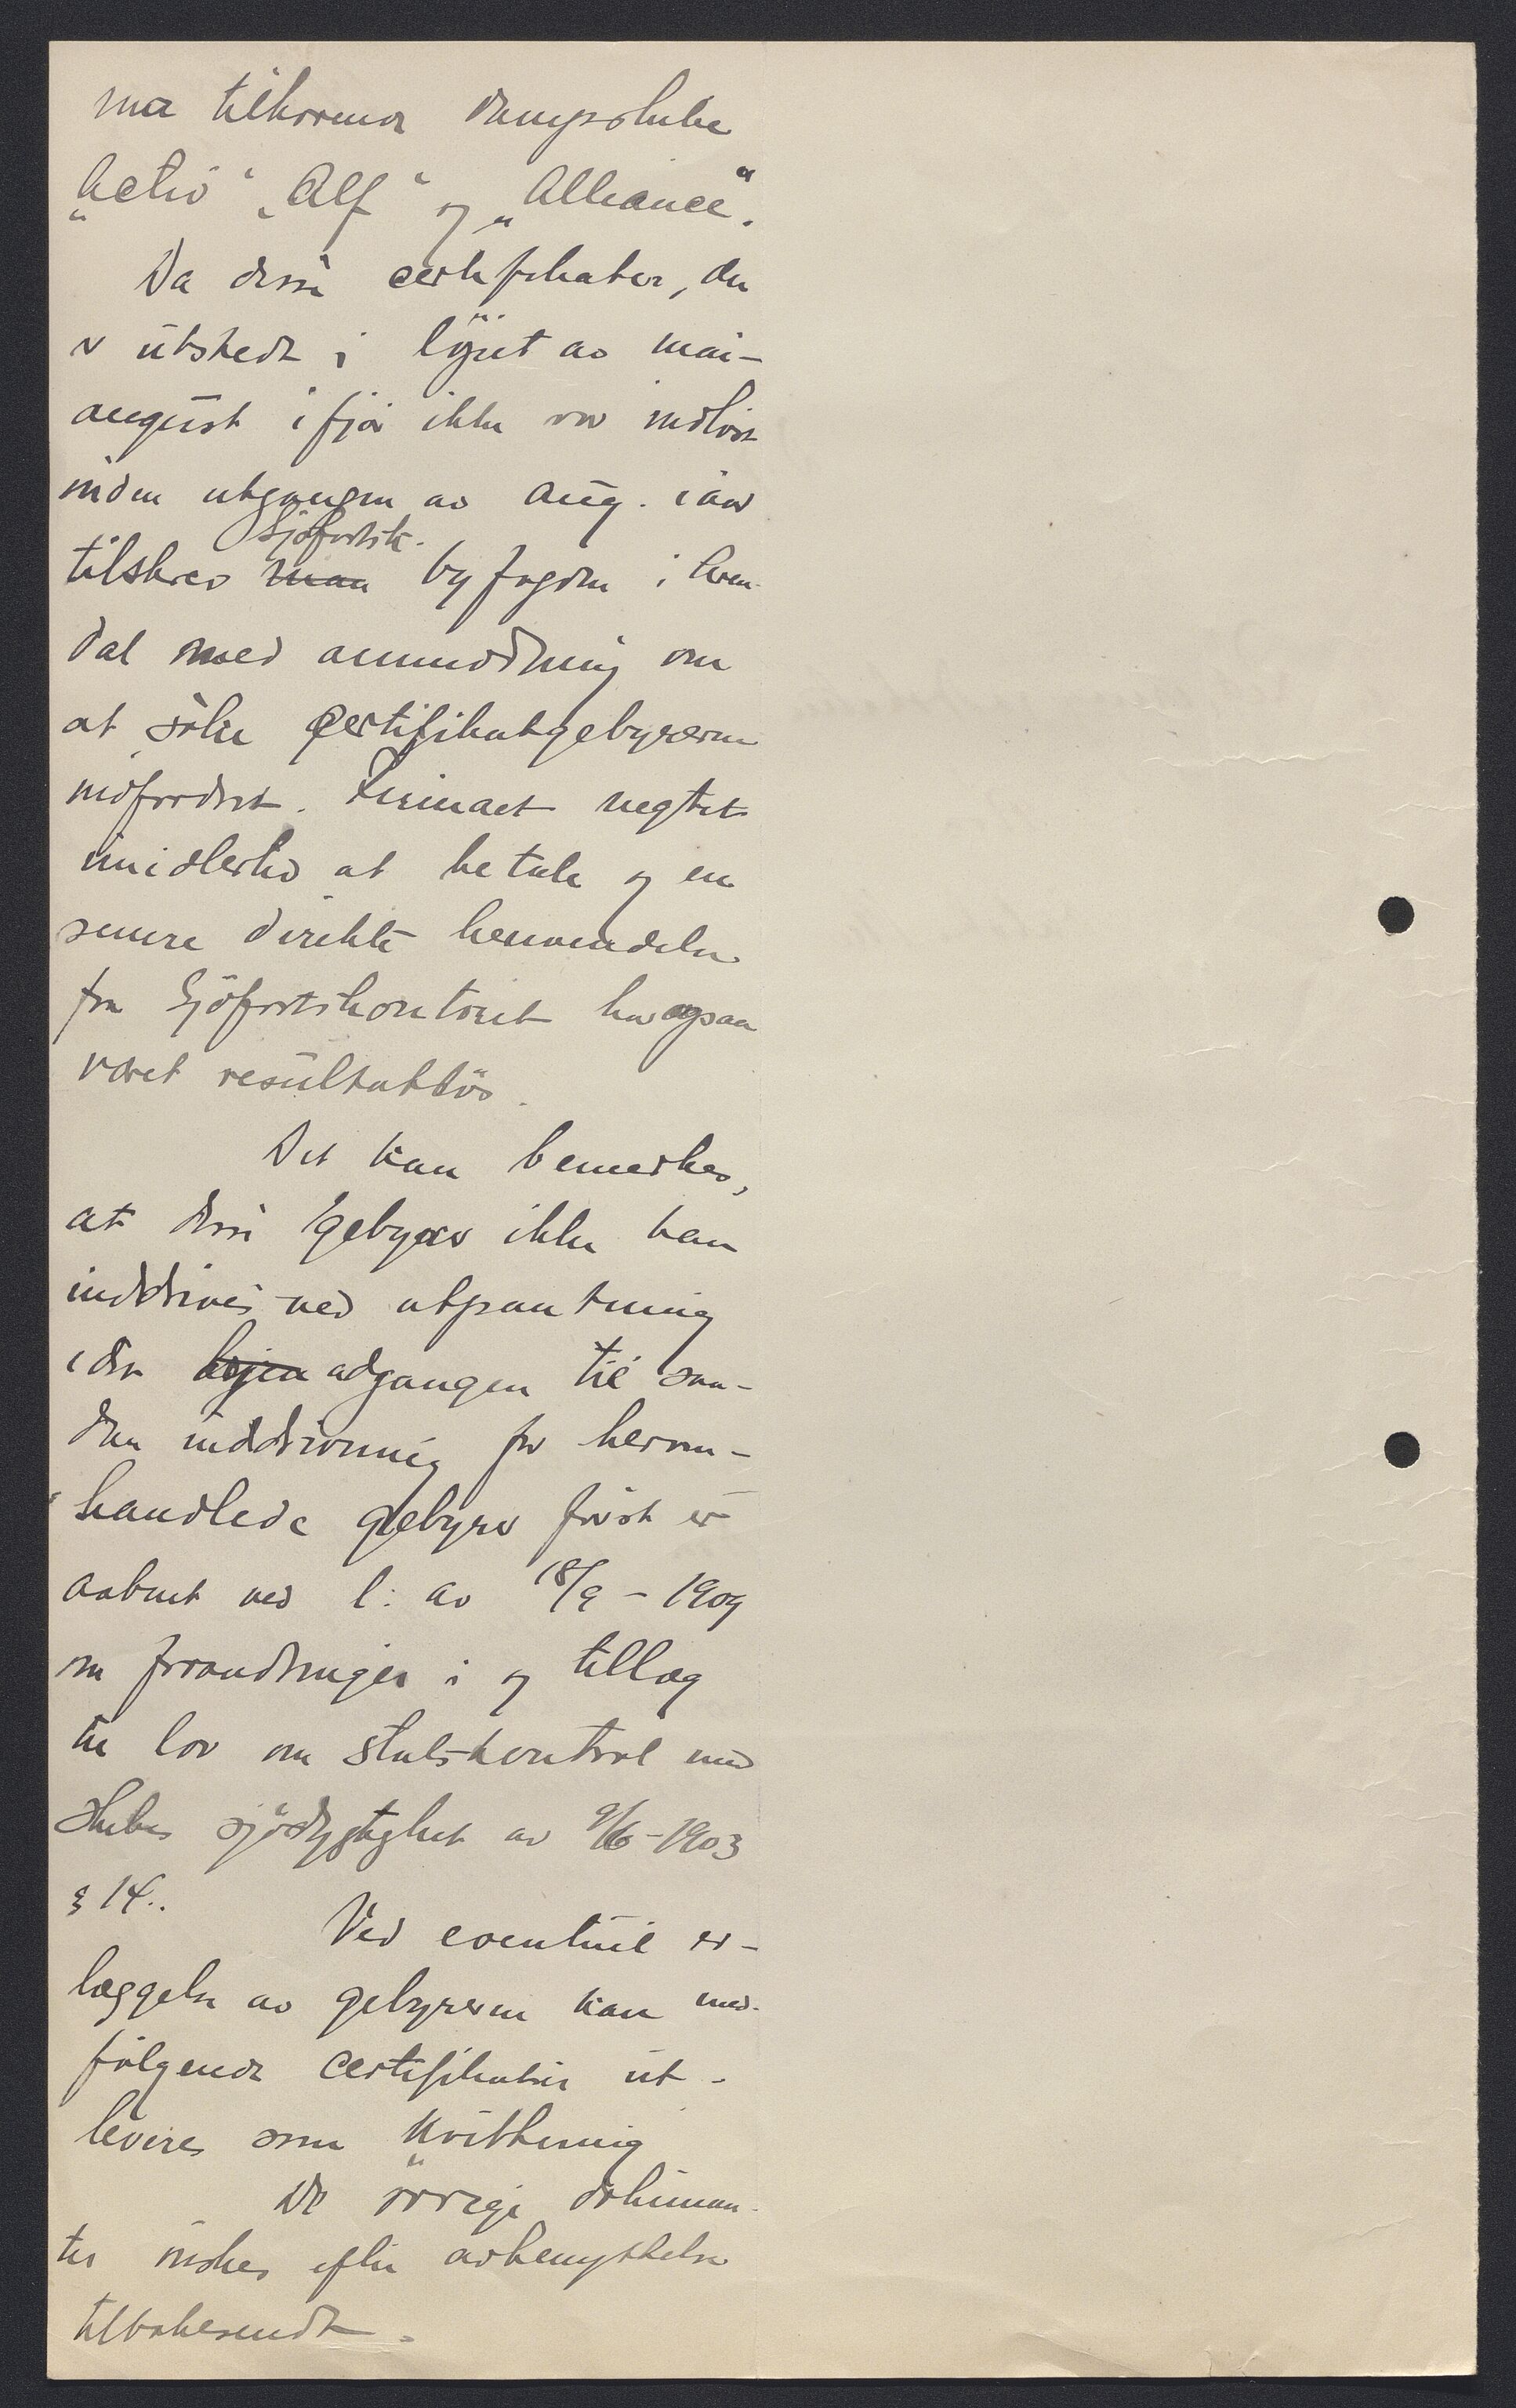 ma tilhørende dampskibe
„Activ“ „Alf“ og „Alliance“.
Da disse certifikater, der
er utstedt i løpet av mai–
august ifjor ikke var indløst
inden utgangen av aug. iaar
Sjøfartsk.
tilskrev man byfogden i Aren-
dal med anmodning om
at søke certifikatgebyrerne
indfordret. Firmaet negtet
imidlertid at betale og en
senere direkte henvendelse
fra Sjøfartskontoret har ogsaa
været resultatløs.
Det kan bemerkes,
at disse gebyrer ikke kan
inddrives ved utpantning
idet adgangen til saa-
dan inddrivning for herom-
handlede gebyrer først er
aabnet ved l. av 18/9 – 1909
om forandringer i og tillæg
til lov om statskontrol med
skibes sjødygtighet av 9/6 – 1903
§ 14.
Ved eventuel er-
læggelse av gebyrerne kan med-
følgende certifikater ut-
leveres som kvittering
De øvrige dokumen-
ter ønskes efter avbenyttelse
tilbakesendt.